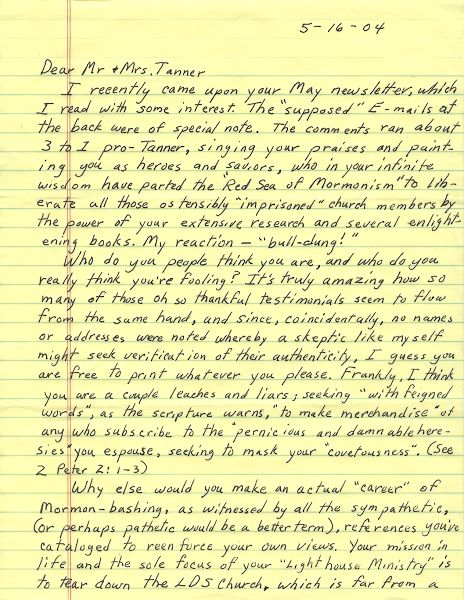 5-16-04
Dear Mr + Mrs. Tanner
I recently came upon your May newsletter, which
I read with some interest. The "supposed" E-mails at
the back were of special note. The comments ran about
3 to 1 pro-Tanner, singing your praises and paint-
ing you as heroes and saviors, who in your infinite
wisdom have parted the "Red Sea of Mormonism" to lib-
erate all those ostensibly "imprisoned" church members by
the power of your extensive research and several enlight-
ening books. My reaction - "bull-dung!"
Who do you people think you are, and who do you
really think you're fooling? It's truly amazing how so
many of those oh so thankful testimonials seem to flow
from the same hand, and since, coincidentally, no names
or addresses were noted whereby a skeptic like myself
might seek verification of their authenticity, I guess you
are free to print whatever you please. Frankly, I think
you are a couple leaches and liars; seeking "with feigned
words", as the scripture warns, "to make merchandise" of
any who subscribe to the "pernicious and damnable here-
sies" you espouse, seeking to mask your "covetousness". (See
2 Peter 2: 1-3)
Why else would you make an actual "career" of
Mormon-bashing, as witnessed by all the sympathetic,
(or perhaps pathetic would be a better term), references you've
cataloged to reenforce your own views. Your mission in
life and the sole focus of your "Lighthouse Ministry" is
to tear down the LDS Church, which is far from a